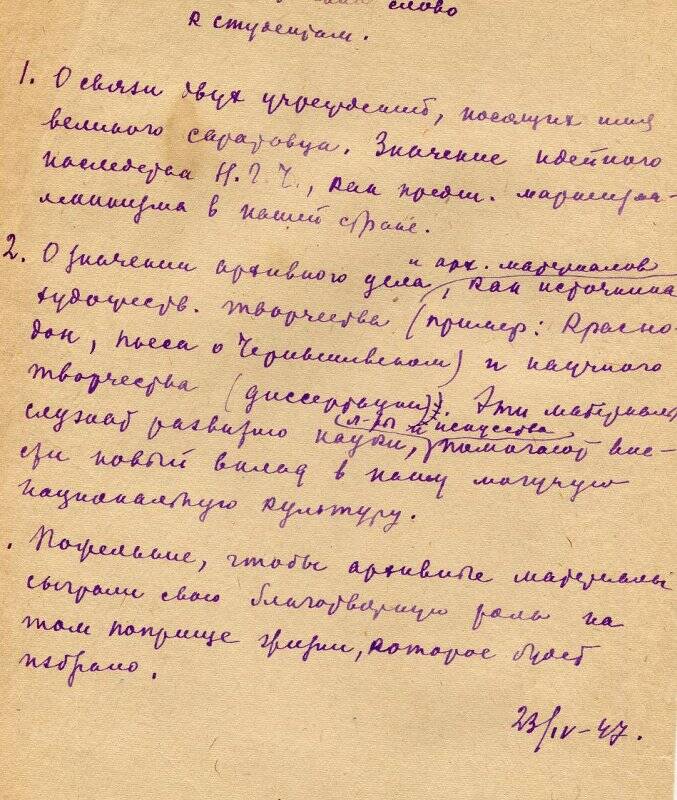 слово
к студентам.
1. О связи двух учреждений, носящих имя
великого саратовца. Значение идейного
наследства Н.Г.Ч., как предш. марксизма-
ленинизма в нашей стране.
2. О значении архивного дела и арх. материалов, как источника
художеств. творчества (пример: Красно-
дон, пьеса о Чернышевском) и научного
творчества (диссертации). Эти материалы
служат развитию науки, л-ры и искусства помогают вне-
сти новый вклад в нашу могучую
национальную культуру.
. Пожелание, чтобы архивные материалы
сыграли свою благотворную роль на
том поприще жизни, которое будет
избрано.
23/IV-47.